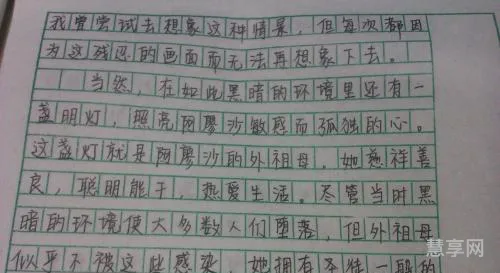 我曾尝试去想象这种情景，但每次都因
为这残忍的画面而无法再想象下去。
当然，在如此黑暗的环境里还有一
盏明灯，照亮阿廖沙敏感而孤独的心。
这盏灯就是阿廖沙的外祖母。她慈祥善
良，聪明能干，热爱生活。尽管当时黑
暗的环境使大多数人们堕落，但外祖母
似乎不被这些感染，她拥有圣徒一般的
慧享网